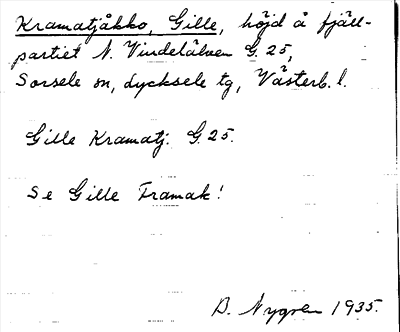 Kramatjåkko, Gille, höjd å fjäll-
partiet N. Vindelälven G. 25,
Sorsele sn, Lycksele tg, Västerb. l.
Gille Kramatj. G. 25.
Se Gille Framak!
B. Nygren 1935.